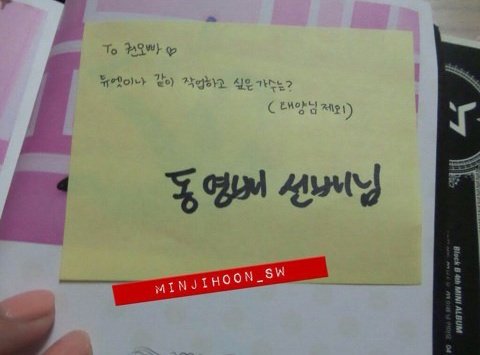 To 권오빠♡
듀엣이나 같이 작업하고 싶은 가수는?
(태양님 제외)
동영배 선배님
MINJIHOON_SW
Block B 4th MINI ALBUM